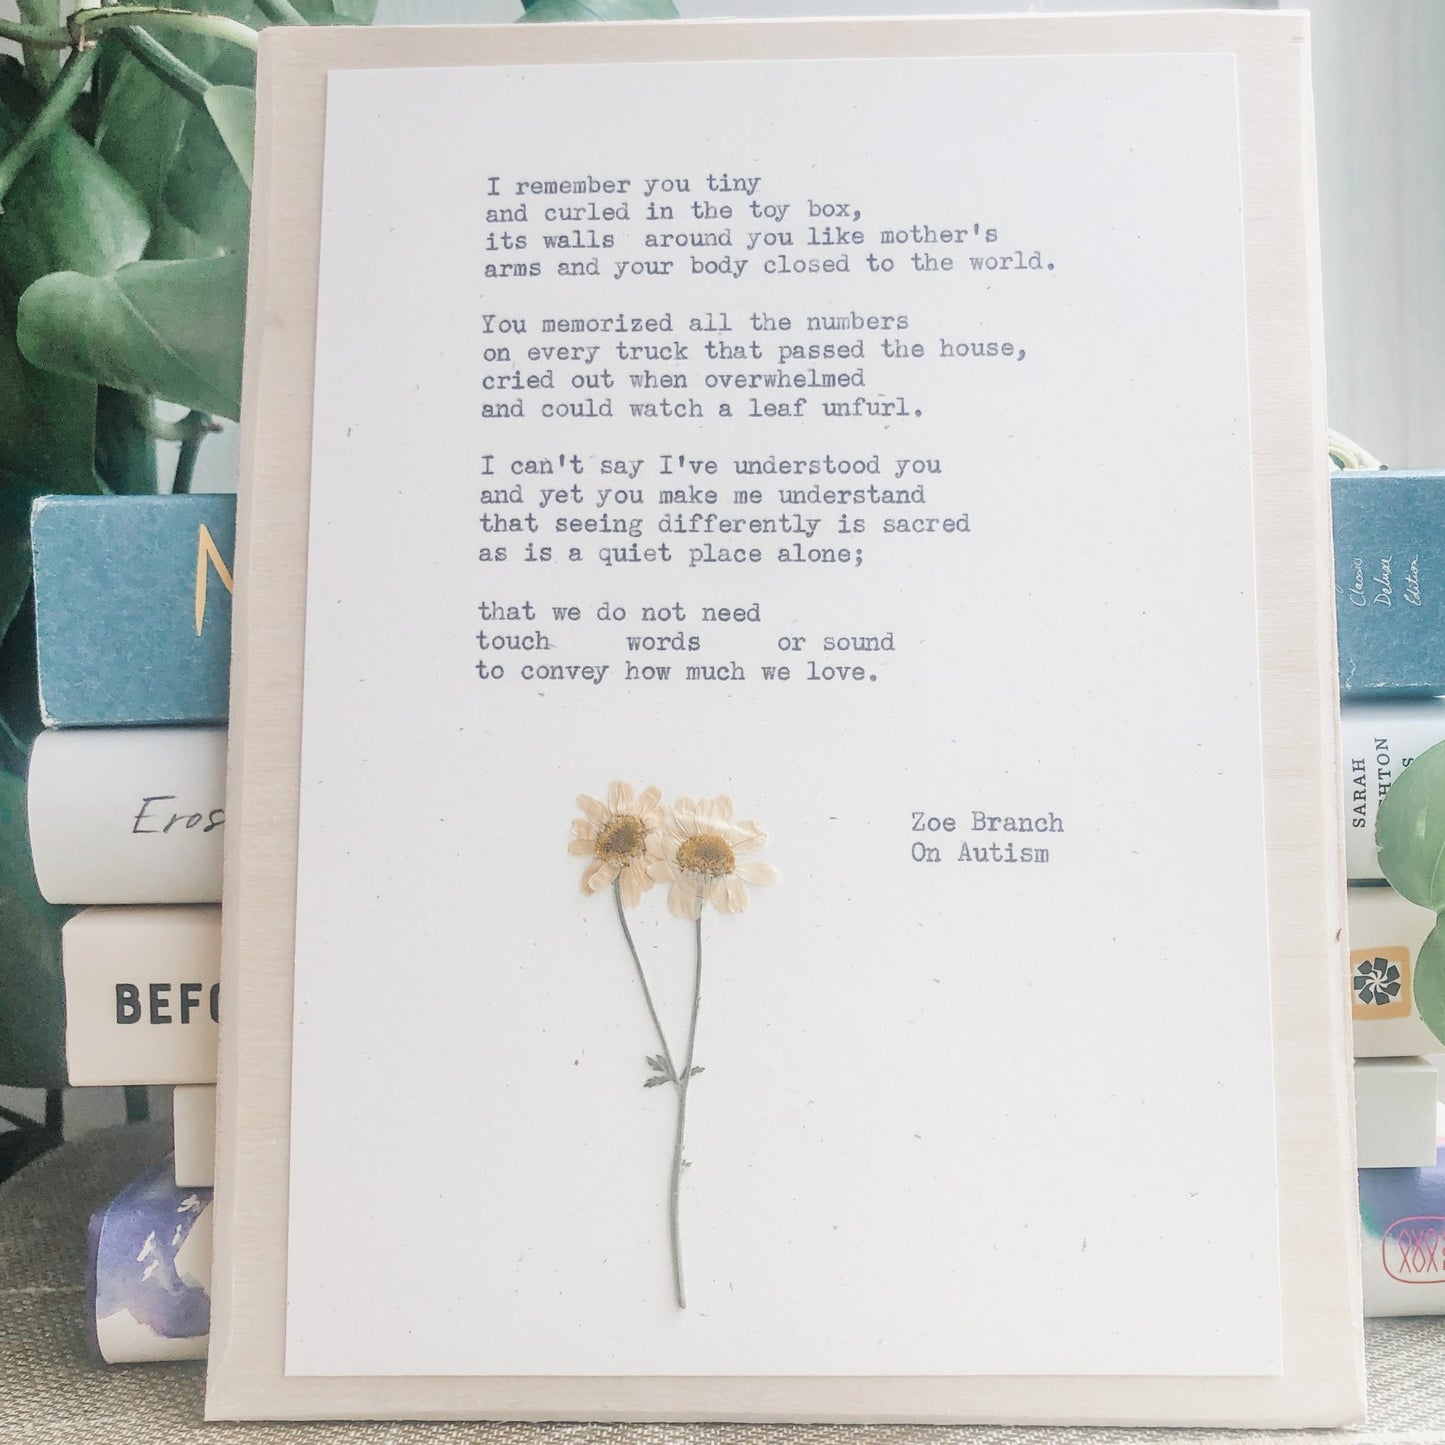 I remember you tiny
and curled in the toy box,
its walls around you like mother's
arms and your body closed to the world.
You memorized all the numbers
on every truck that passed the house,
cried out when overwhelmed
and could watch a leaf unfurl.
I can't say I've understood you
and yet you make me understand
that seeing differently is sacred
as is a quiet place alone;
that we do not need
touch words or sound
to convey how much we love.
Zoe Branch
On Autism
Eros
BEFO
Classic
Deluxe
Edition
SARAH